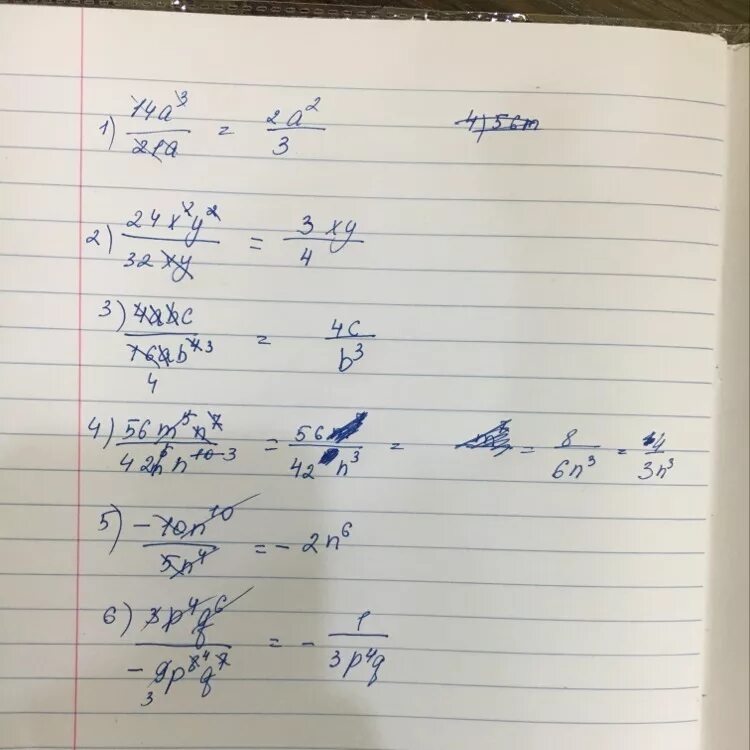 1) 14a³/21a = 2a²/3
4) 56m
2) 24x²y²/32xy = 3xy/4
3) 4abc/16ab⁴ ³ 4 = 4c/b³
4) 56m⁵n⁷/42m⁵n¹⁰⁻³ = 56/42n³ = = 8/6n³ = 4/3n³
5) -10n¹⁰/5n⁴ = -2n⁶
6) 3p⁴q⁶/-9p⁸ ⁴q⁷ 3 = -1/3p⁴q